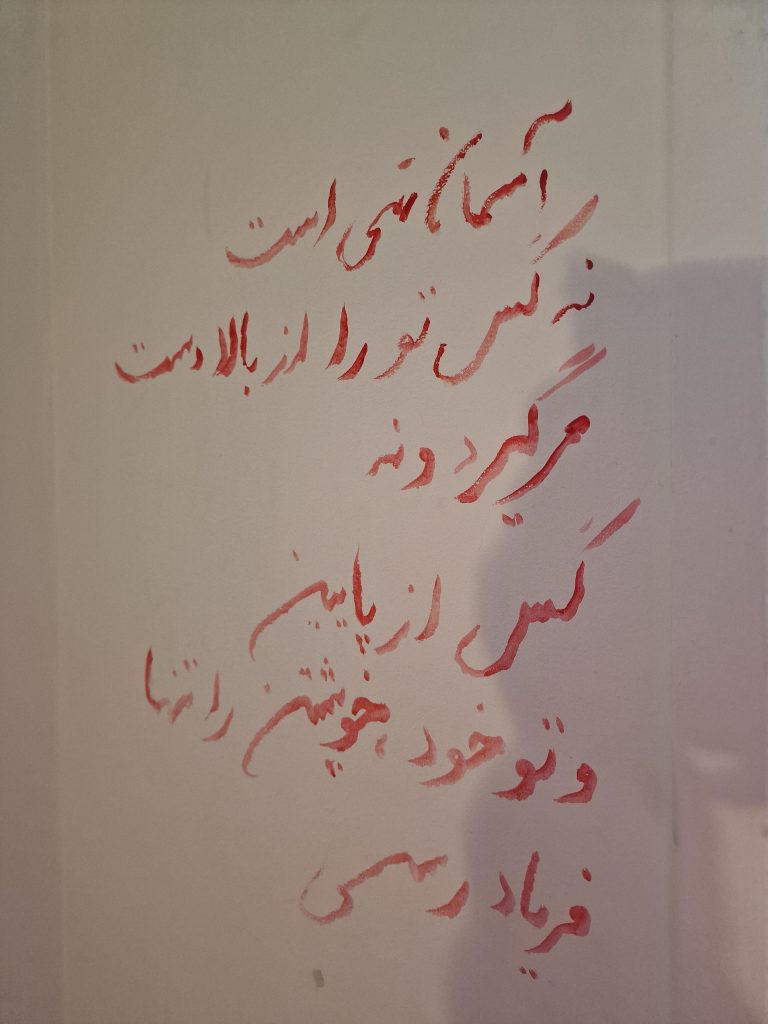 آسمان تهی است
نه کس تو را از بالا دست
میگیرد و نه
کس از پایین
و تو خود، خویشتن را تنها
فریاد رسی